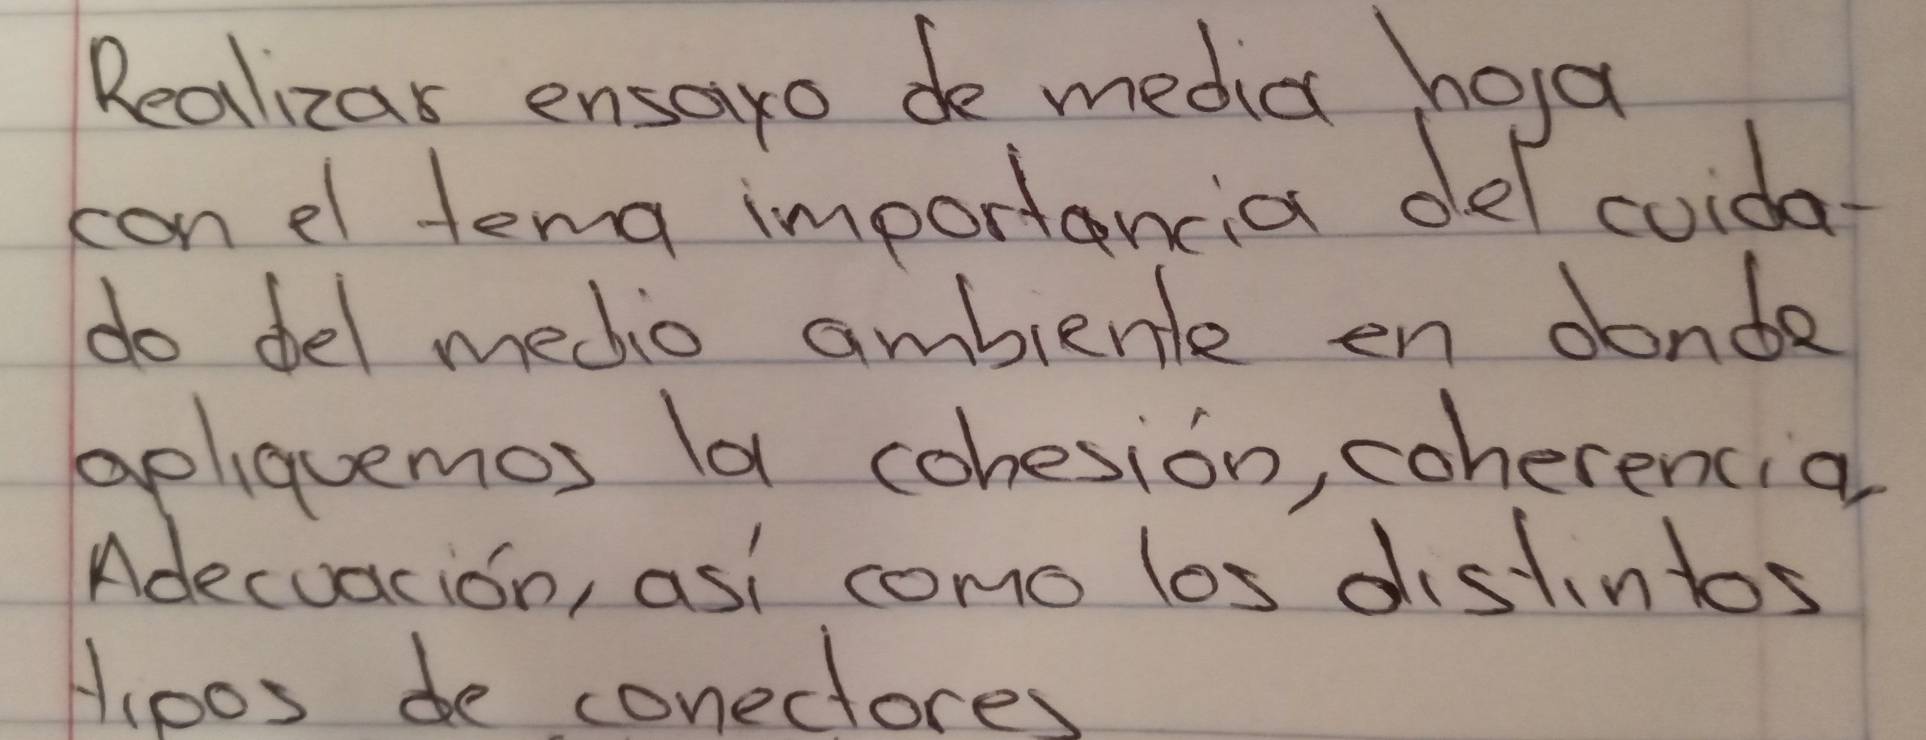 Realizar ensayo de media hoja
con el tema importancia del cuida-
do del medio ambiente en donde
apliquemos la cohesión, coherencia,
Adecuación, así como los distintos
tipos de conectores